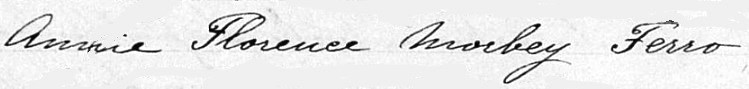 Annie Florence Morbey Ferro